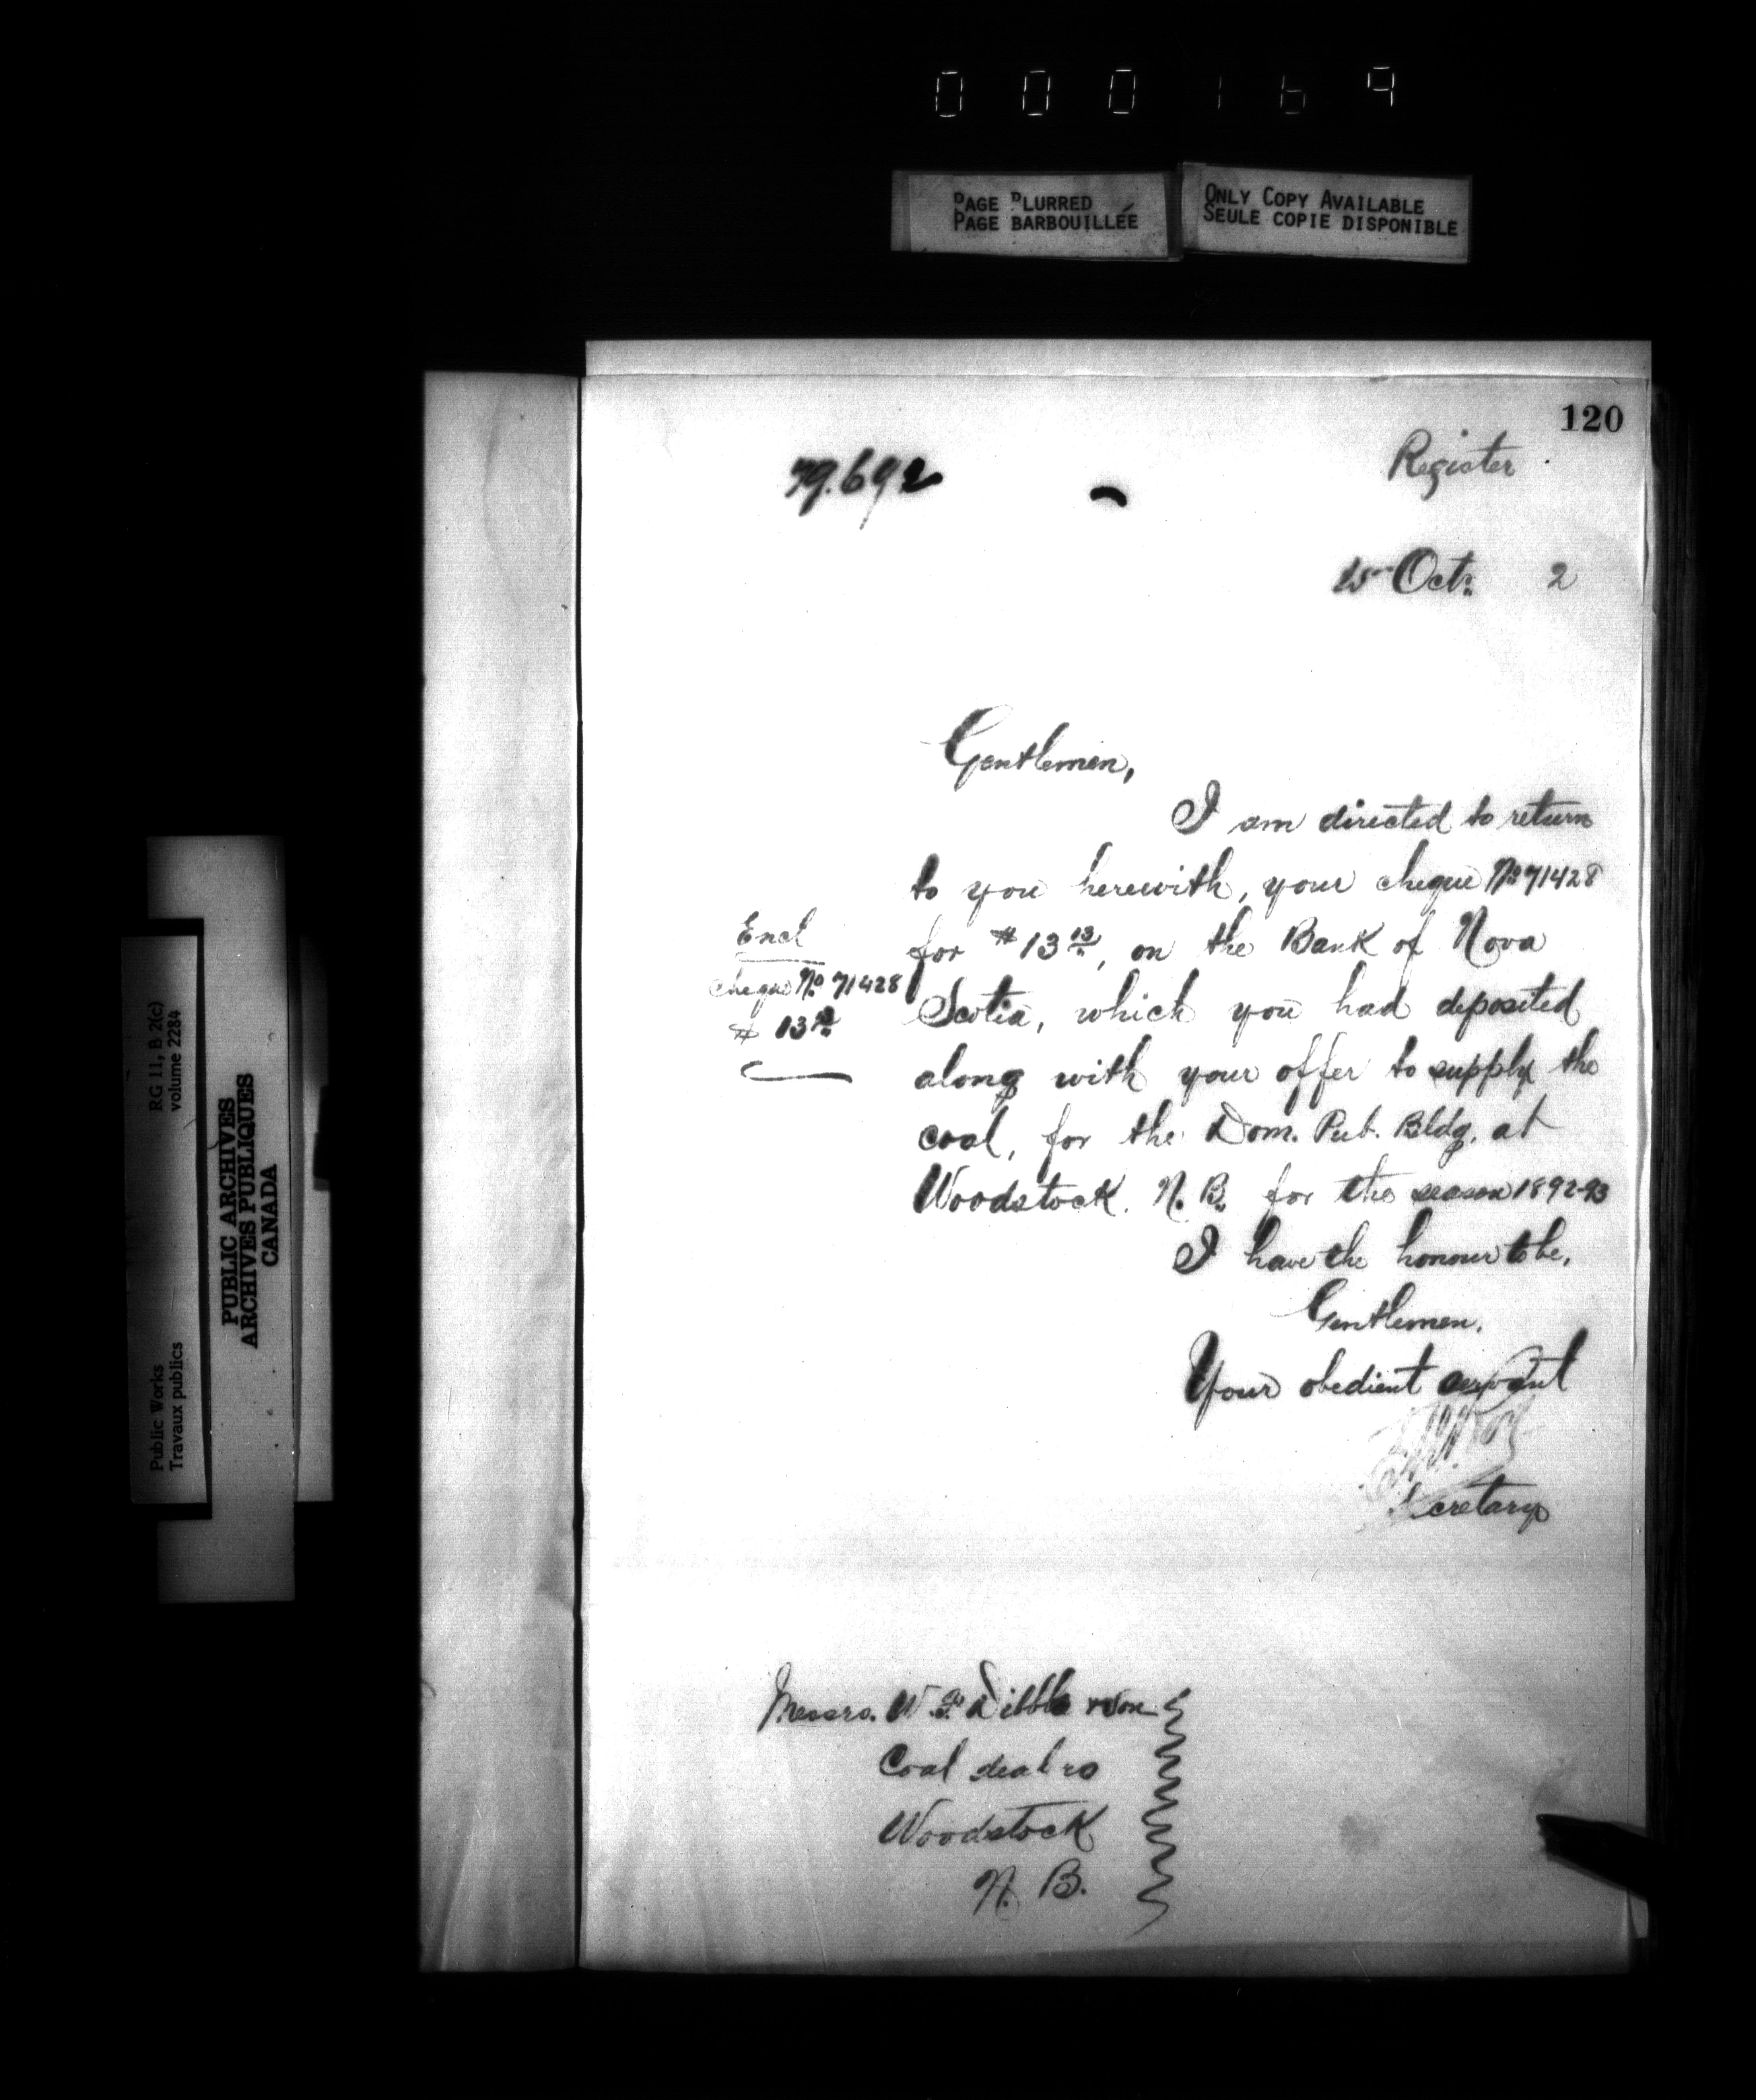 000169
PAGE BLURRED
PAGE BARBOUILLÉE
ONLY COPY AVAILABLE
SEULE COPIE DISPONIBLE
120
Register
79.692
15 Octr. 2
Gentlemen,
I am directed to return
to you herewith, your cheque No 71428
for $13 13, on the Bank of Nova
Scotia, which you had deposited
along with your offer to supply the
coal, for the Dom. Pub. Bldg. at
Woodstock. N. B. for the season 1892-93
I have the honour to be,
Gentlemen,
Your obedient servant
Secretary
Encl
cheque No 71428
$ 13
Messrs. W. F. Dibble & Son
Coal dealrs
Woodstock
N. B.
RG 11, B 2(c)
volume 2284
Public Works
Travaux publics
PUBLIC ARCHIVES
ARCHIVES PUBLIQUES
CANADA